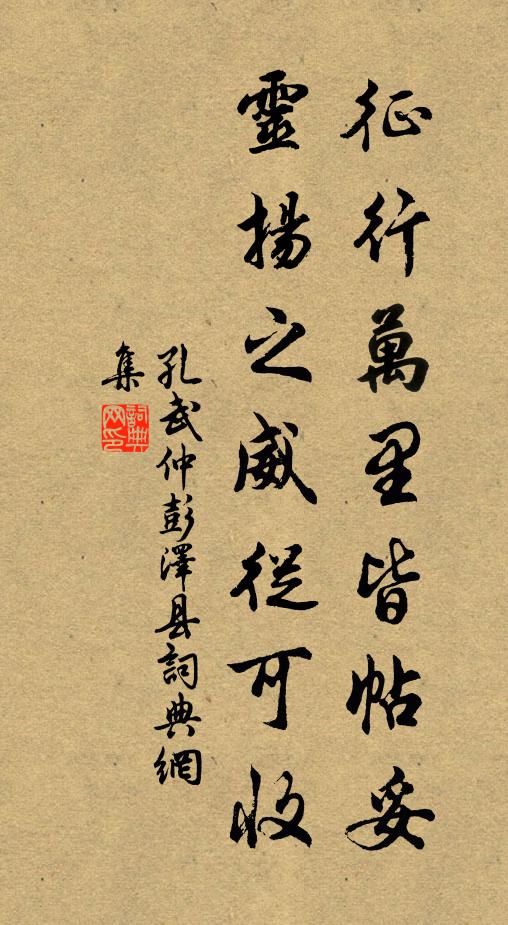 征行萬里皆帖妥
靈揚之威從可收
孔武仲彭澤县詞典網
集
詞典网印